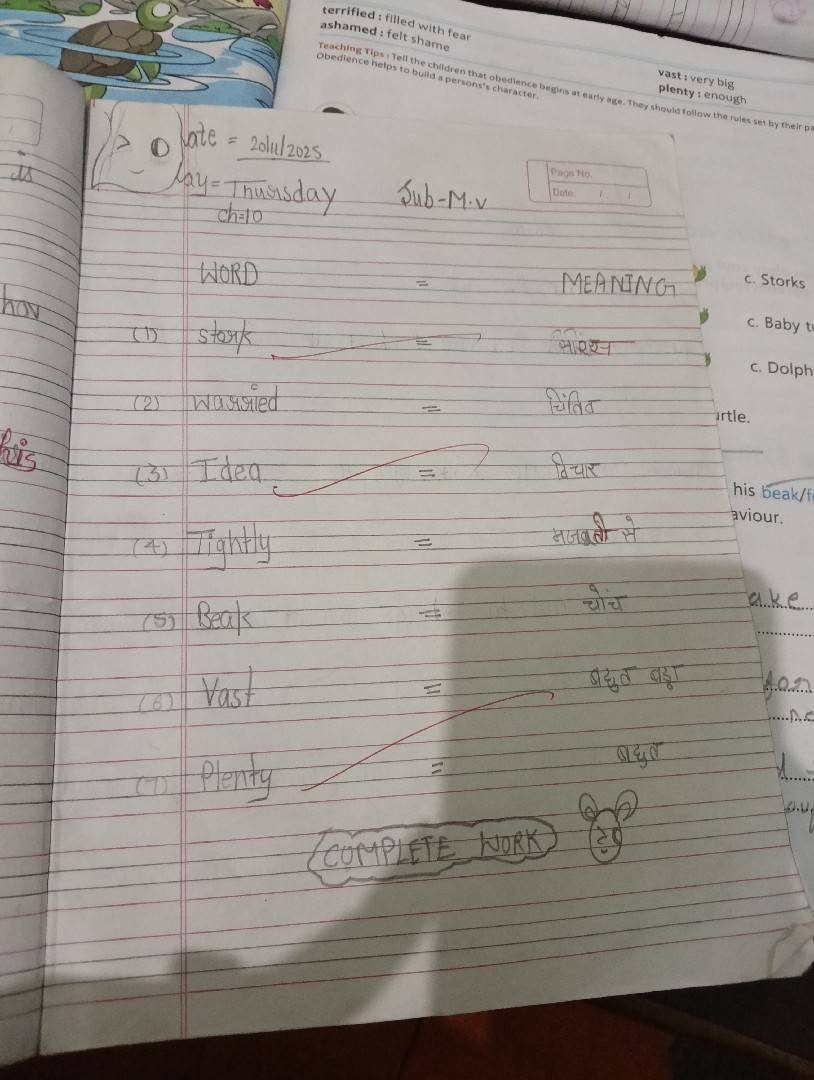 terrified : filled with fear
ashamed : felt shame
vast : very big
plenty : enough
Teaching Tips : Tell the children that obedience begins at early age. They should follow the rules set by their
Obedience helps to build a persons's character.
Date = 20/11/2025
Day = Thursday
Sub-M.V
Page No.
Date / /
ch=10
WORD = MEANING
(1) stork = सारस
(2) warried = चिंतित
(3) Idea = विचार
(4) Tightly = से
(5) Beak = चोंच
(6) Vast = बहुत बड़ा
(7) Plenty = बहुत
COMPLETE WORK
is
hav
his
c. Storks
c. Baby
c. Dolph
urtle.
his beak/
aviour.
ake